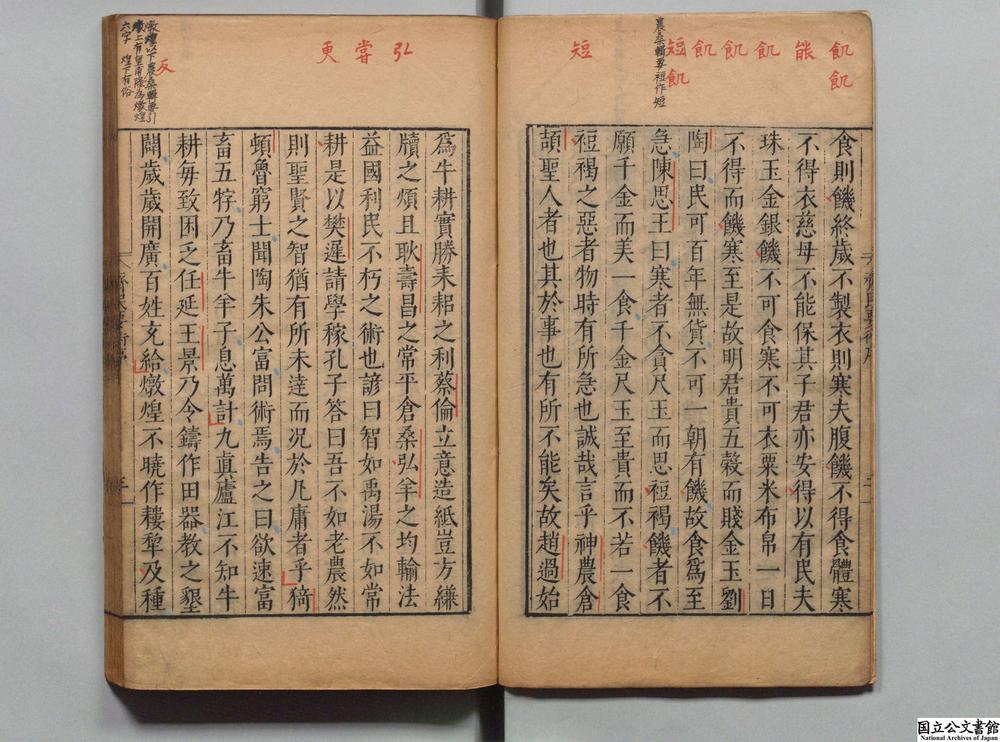 飢飢
能
飢
飢
飢
短飢
農桑輯要裋作短
短
食則饑終歲不製衣則寒夫腹饑不得食體寒
不得衣慈母不能保其子君亦安得以有民夫
珠玉金銀饑不可食寒不可衣粟米布帛一日
不得而饑寒至是故明君貴五穀而賤金玉劉
陶曰民可百年無貨不可一朝有饑故食爲至
急陳思王曰寒者不貪尺玉而思裋褐饑者不
願千金而美一食千金尺玉至貴而不若一食
裋褐之惡者物時有所急也誠哉言乎神農倉
頡聖人者也其於事也有所不能矣故趙過始
弘
嘗
更
反
敦煌以下農桑輯要引
燉上有皇甫隆爲燉煌
六字 煌下有俗
爲牛耕實勝耒耜之利蔡倫立意造紙豈方縑
牘之煩且耿壽昌之常平倉桑弘羊之均輸法
益國利民不朽之術也諺曰智如禹湯不如常
耕是以樊遲請學稼孔子答曰吾不如老農然
則聖賢之智猶有所未達而況於凡庸者乎猗
頓魯窮士聞陶朱公富問術焉告之曰欲速富
畜五牸乃畜牛羊子息萬計九眞廬江不知牛
耕每致困乏任延王景乃令鑄作田器教之墾
闢歲歲開廣百姓充給燉煌不曉作耬犂及種
国立公文書館
National Archives of Japan